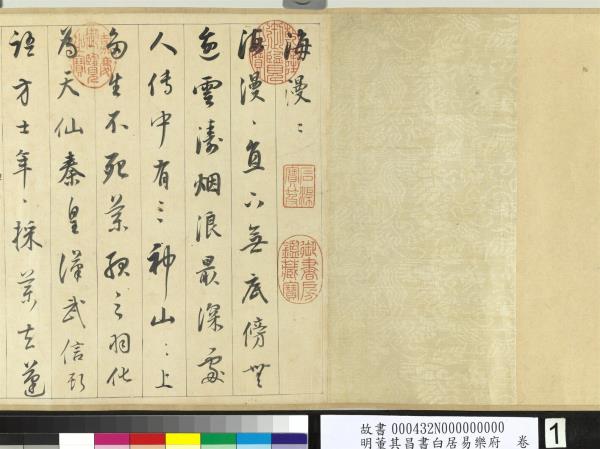 海漫〻
海漫〻直下無底傍無
邊雲濤烟浪最深處
人傳中有三神山〻上
多生不死藥服之羽化
為天仙秦皇漢武信此
語方士年〻採藥去蓬
石渠寶笈
御書房鑑藏寶
故書 000432N000000000
明董其昌書白居易樂府 卷
1